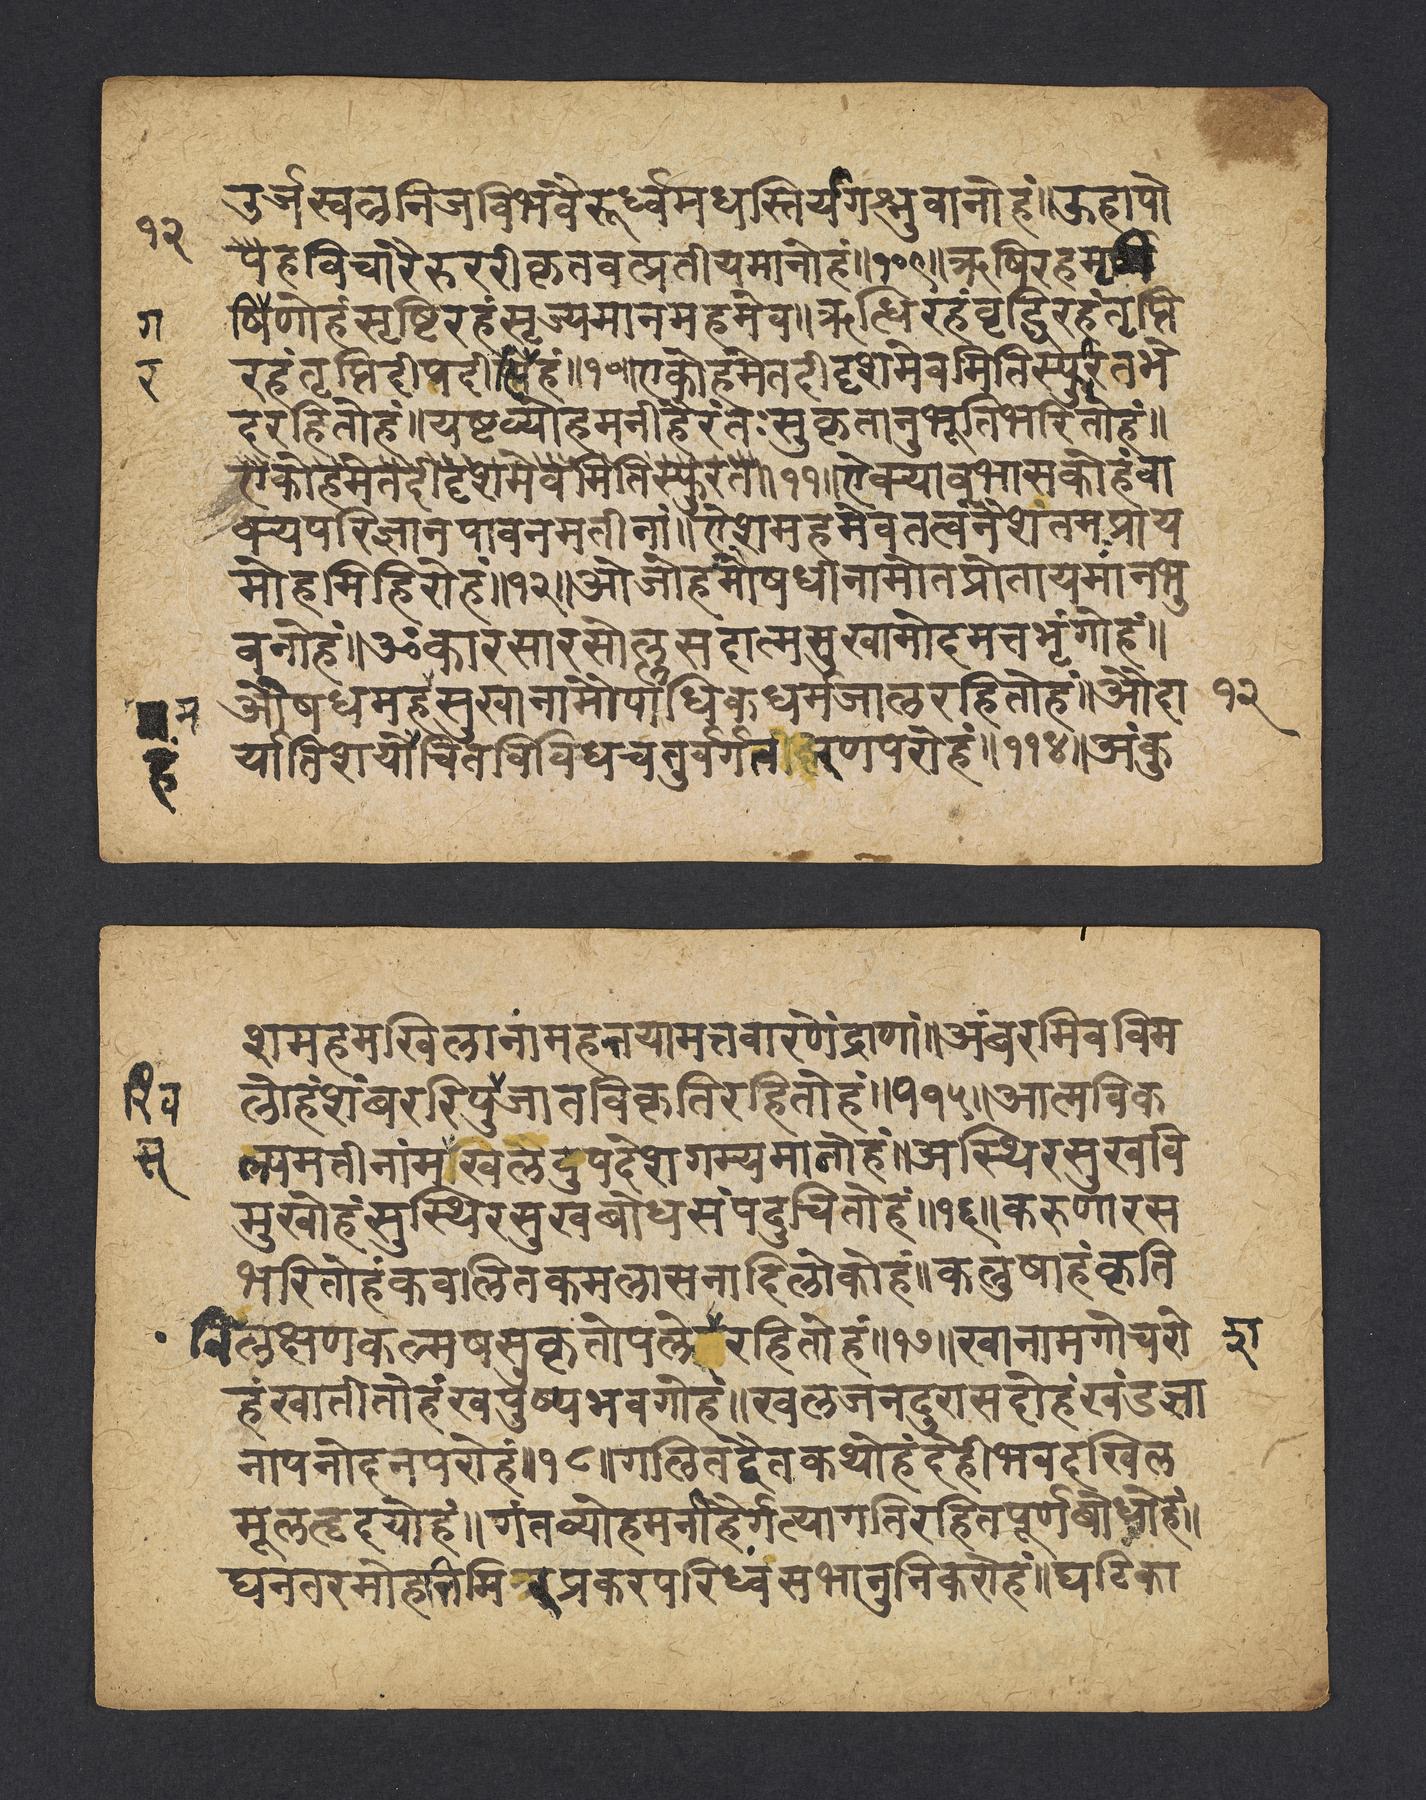 उर्जस्वलनिजविभवैरूर्ध्वमधस्तिर्यगश्नुवानोहं॥ऊहापो
१२
पोहविचारैरुररीकृतवत्प्रतीयमानोहं॥१०९॥ऋषिरहमृषि
ग
षिगणोहंसृष्टिरहंसृज्यमानमहमेव॥ऋद्धिरहंवृद्धिरहंतृप्ति
र
रहंतृप्तिदीपदीप्तिरहं॥१०॥एकोहमेतदीदृशमेवमितिस्फुरितभे
दरहितोहं॥यष्टव्योहमनीहैरंतःसुकृतानुभूतिभरितोहं॥
एकोहमेतदीदृशमेवमितिस्फुरत॥११॥ऐक्यावभासकोहंवा
क्यपरिज्ञानपावनमतीनां॥ऐशमहमेवतत्वंनैशंतमप्राय
मोहमिहिरोहं॥१२॥ओजोहमोषधीनामोतप्रोतायमानभु
वनोहं॥ॐकारसारसोल्लसदात्मसुखामोदमत्तभृंगोहं॥
औषधमहंसुखानामौपाधिकधर्मजालरहितोहं॥औदा
१२
म
र्यातिशयोचितविविधचतुर्वर्गतारणपरोहं॥११४॥अंकु
हं
शमहमखिलानांमहत्तयामत्तवारणेंद्राणां॥अंबरमिवविम
रिव
लोहंशंबररिपुजातविकृतिरहितोहं॥११५॥आत्मविक
स्
ल्पमतीनांमखिलदुपदेशगम्यमानोहं॥अस्थिरसुखवि
मुखोहंसुस्थिरसुखबोधसंपदुचितोहं॥१६॥करुणारस
भरितोहंकवलितकमलासनादिलोकोहं॥कलुषाहंकृति
विलक्षणकल्मषसुकृतोपलेपरहितोहं॥१७॥खानामगोचरो
ज्ञा
हंखातीतोहंखपुष्पभवगोहं॥खलजनदुरासदोहंखंडज्ञा
नापनोदनपरोहं॥१८॥गलितद्वैतकथोहंदेहीभवदखिल
मूलहृदयोहं॥गंतव्योहमनीहैर्गत्यागतिरहितपूर्णबोधोहं॥
घनतरमोहतिमिरप्रकरपरिध्वंसभानुनिकरोहं॥घटिका